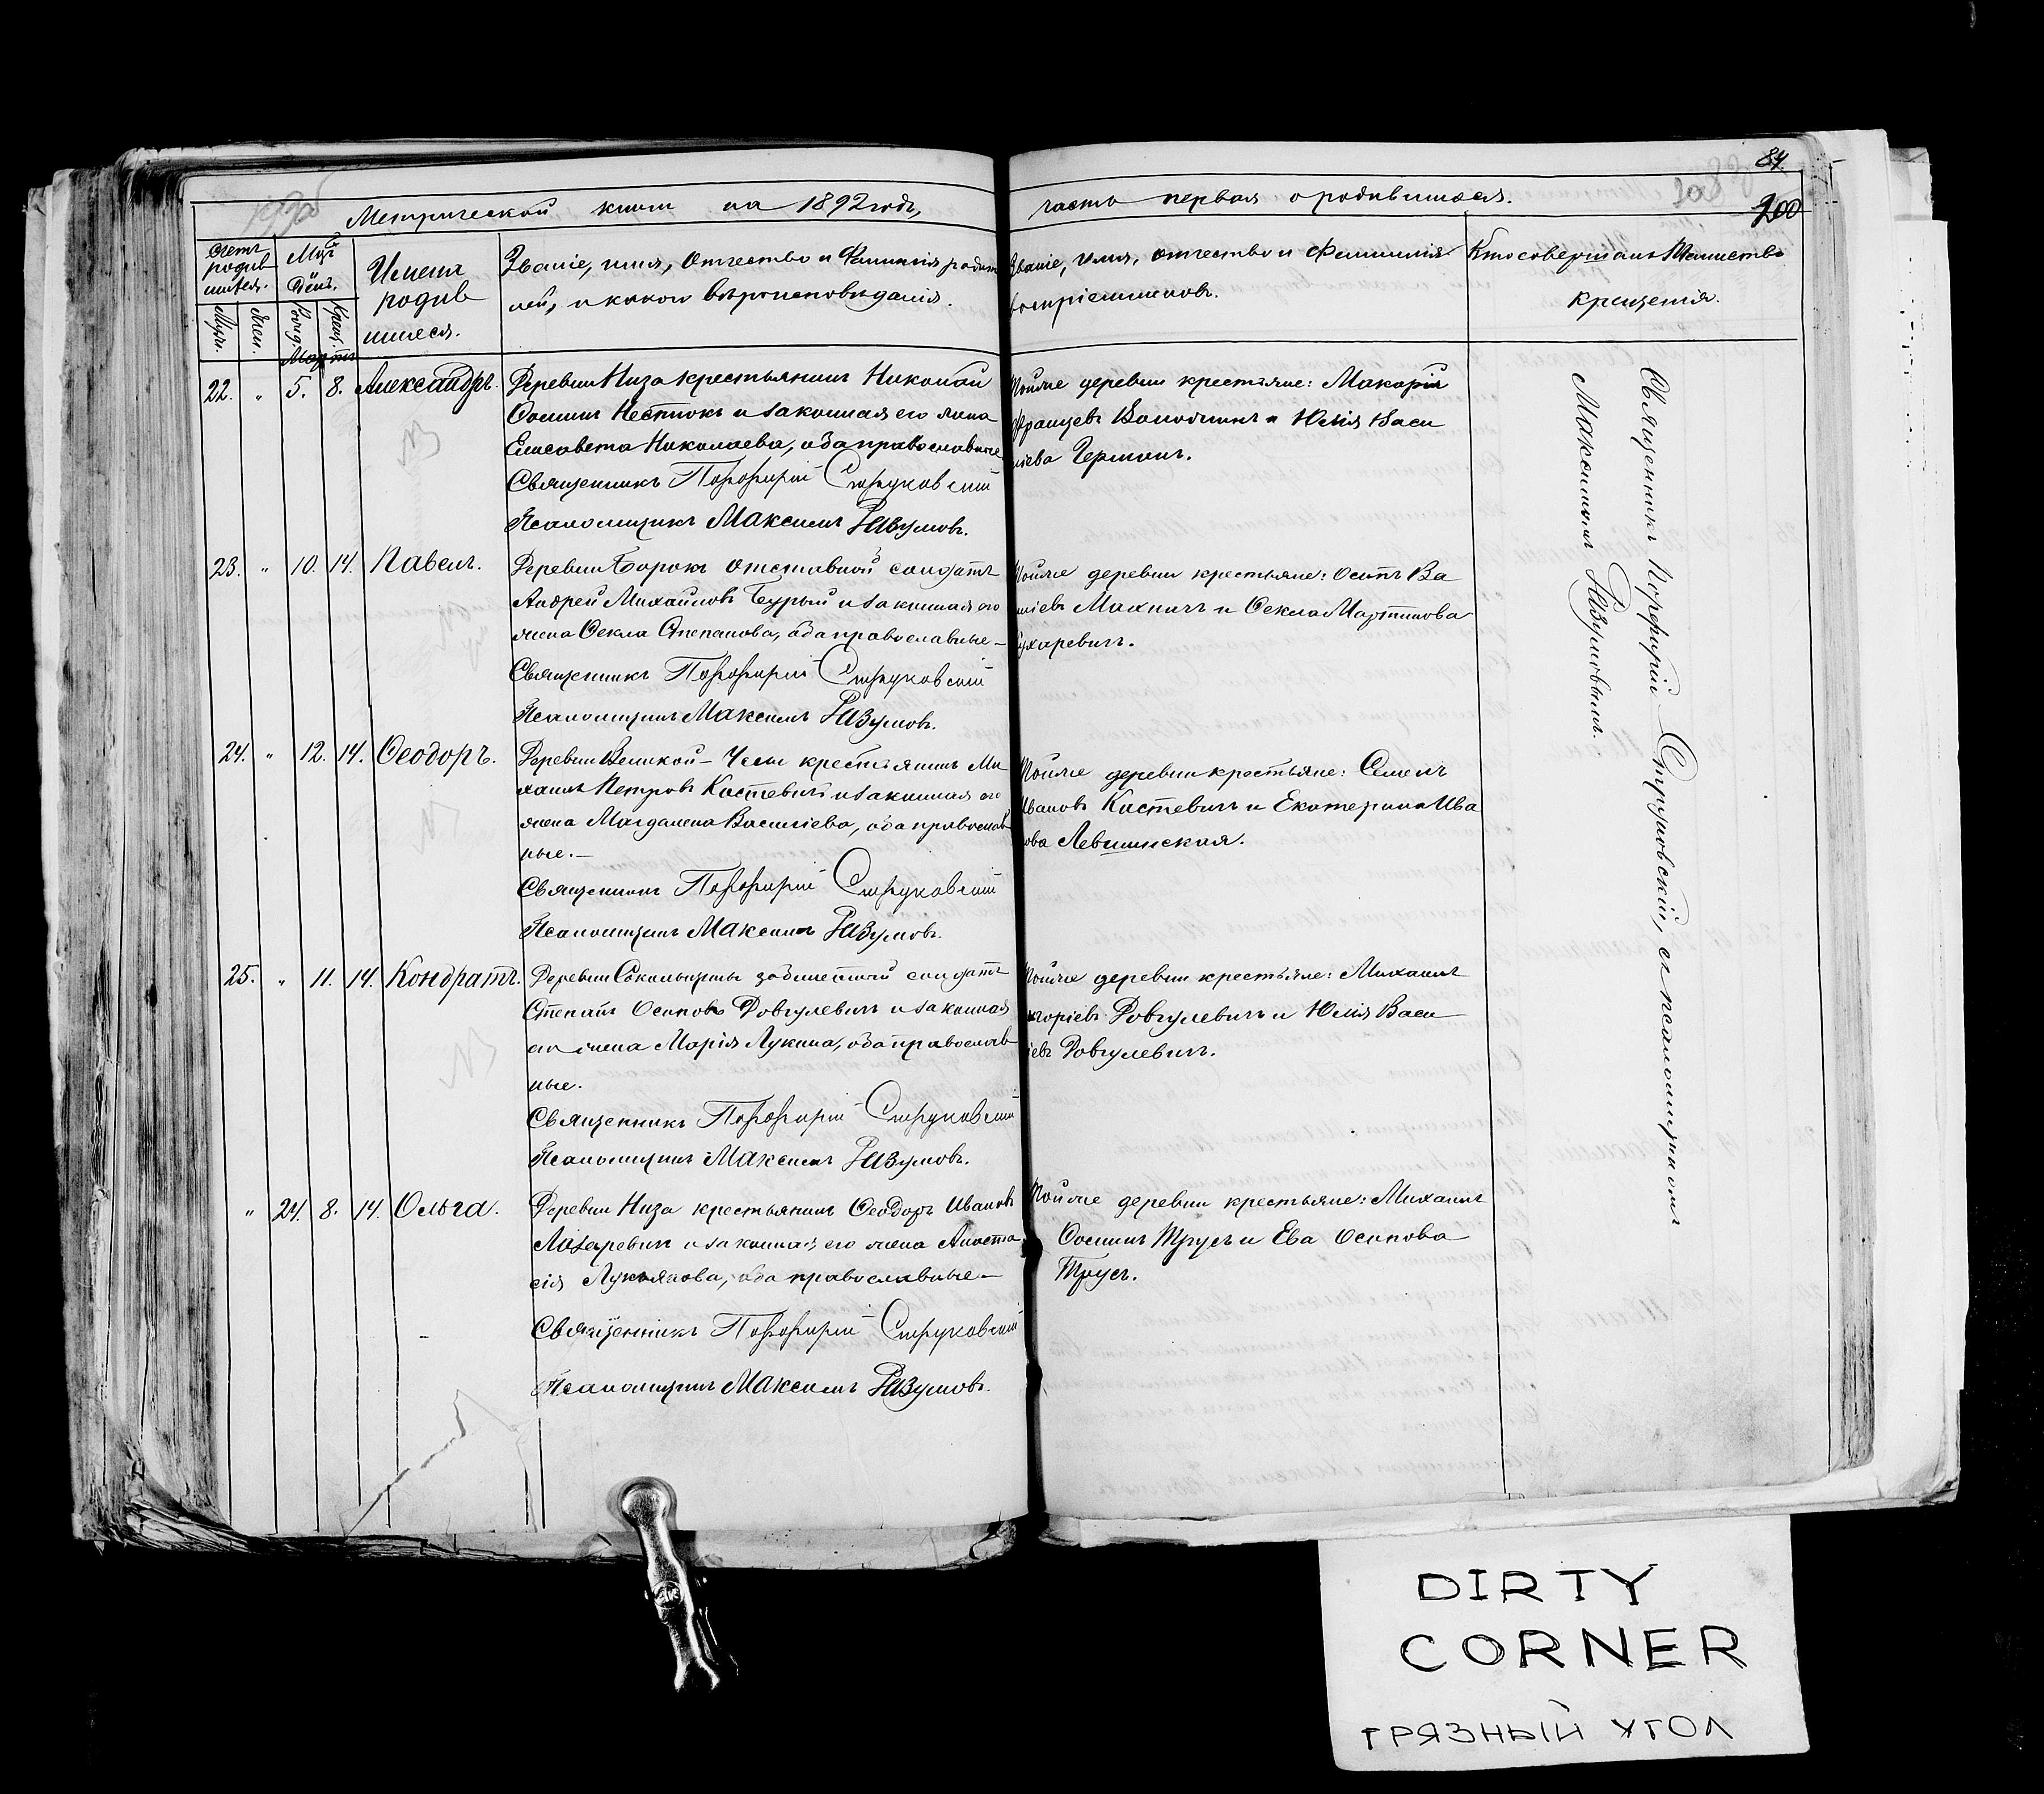 84
200
Метрической книги на 1892 годъ,
часть первая о родившихся.
Счетъ родив шихся.
Муж.
Жен.
Мцъ и День.
Рожд.
Крещ.
Имена родив шихся.
Званіе, имя, отчество и фамилія родите
лей, и какого вѣроисповѣданія.
Званіе, имя, отчество и фамилія
воспріемниковъ.
Кто совершалъ таинство
крещенія.
Мартъ
22. " 5. 8. Александръ.
Деревни Низа крестьянинъ Николай
Ѳоминъ Нестюкъ и законная его жена
Елисавета Николаева, оба православные
Священникъ Порфирій Струковскій
Псаломщикъ Максимъ Разумовъ.
Тойже деревни крестьяне: Макарій
Францевъ Колодчикъ и Юлія Васи
ліева Германъ.
23. " 10. 14. Павелъ.
Деревни Борокъ отставной солдатъ
Андрей Михайловъ Бурый и законная его
жена Ѳекла Степанова, оба православные —
Священникъ Порфирій Струковскій
Псаломщикъ Максимъ Разумовъ.
Тойже деревни крестьяне: Осипъ Ва
ліевъ Махничъ и Ѳекла Мартинова
ухаревичъ.
24. " 12. 14. Ѳеодоръ.
Деревни Великой - Чели крестьянинъ Ми
хаилъ Петровъ Костевичъ и законная его
жена Магдалена Василіева, оба православ
ные. —
Священникъ Порфирій Струковскій
Псаломщикъ Максимъ Разумовъ.
Тойже деревни крестьяне: Семенъ
Ивановъ Костевичъ и Екатерина Ива
нова Левшинская.
25. " 11. 14. Кондратъ.
Деревни Сокольщины солдатъ
Степанъ Осиповъ Довгулевичъ и законная
его жена Марія Лукина, оба православ
ные.
Священникъ Порфирій Струковскій
Псаломщикъ Максимъ Разумовъ.
Тойже деревни крестьяне: Михаилъ
горіевъ Довгулевичъ и Юлія Васи
іевъ Довгулевичъ.
" 24. 8. 14. Ольга.
Деревни Низа крестьянинъ Ѳеодоръ Ивановъ
Лазаревичъ и законная его жена Анаста
сія Лукьянова, оба православные —
Священникъ Порфирій Струковскій
Псаломщикъ Максимъ Разумовъ.
Тойже деревни крестьяне: Михаилъ
Ѳоминъ Трусъ и Ева Осипова
Трусъ.
Священникъ Порфирій Струковскій, съ псаломщикомъ
Максимомъ Разумовымъ.
DIRTY
CORNER
ГРЯЗНЫЙ УГОЛ